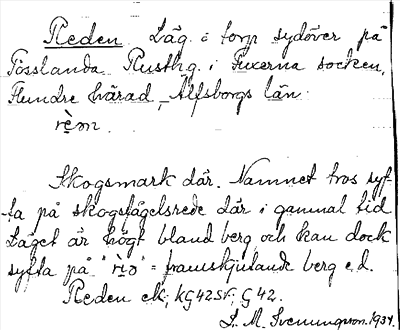 Reden Läg. i torp sydöver på
Tösslanda Rusthg. i Fuxerna socken,
Flundre härad, Älfsborgs län.
rèm.
Skogsmark där. Namnet tros syf-
ta på skogsfågelsrede där i gammal tid
Läget är högt bland berg och kan dock
syfta på "riɔ" = framskjutande berg e.d.
Reden ek, KG42SV, G 42.
L. M. Svenungson. 1934.